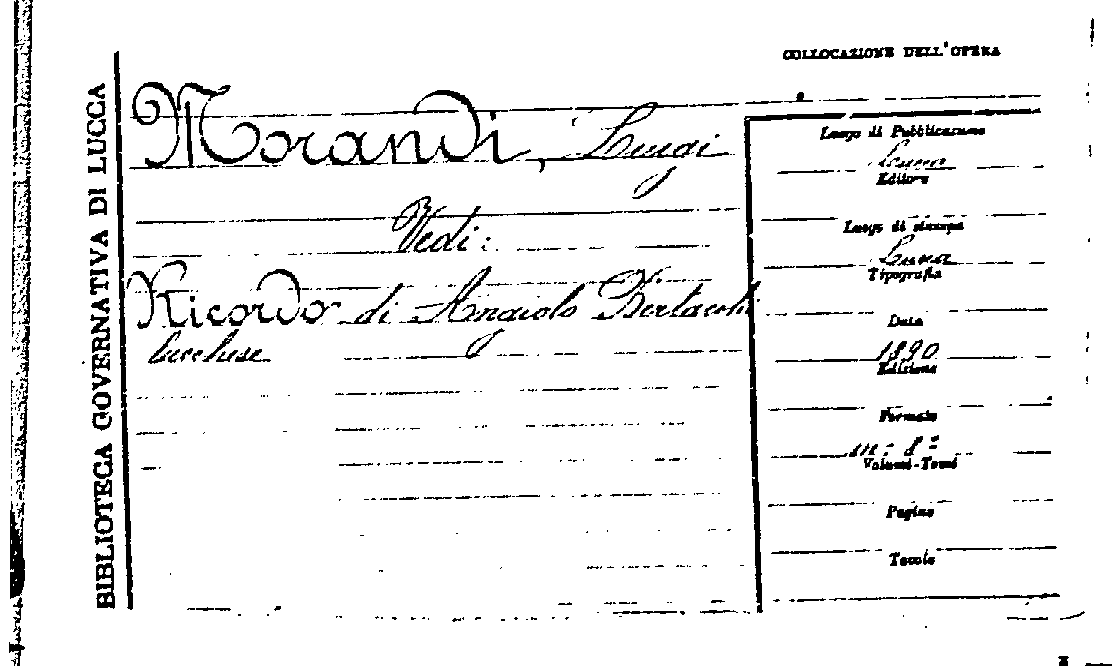 BIBLIOTECA GOVERNATIVA DI LUCCA
COLLOCAZIONE DELL'OPERA
Morandi, Luigi
Vedi:
Ricordo di Angiolo Bertacchi
lucchese
Luogo di Pubblicazione
Lucca
Editore
Luogo di stampa
Lucca
Tipografia
Data
1890
Edizione
Formato
in: 8º
Volumi-Tomi
Pagine
Tavole